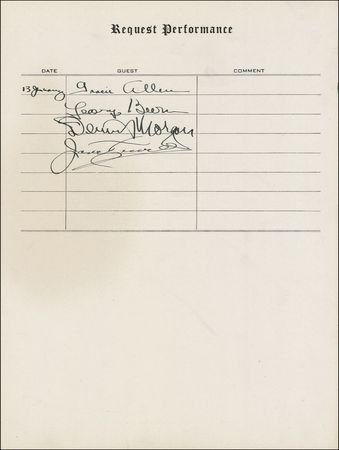 Request Performance
DATE GUEST COMMENT
13 January Gracie Allen
George Burns
Dennis Morgan
Jane